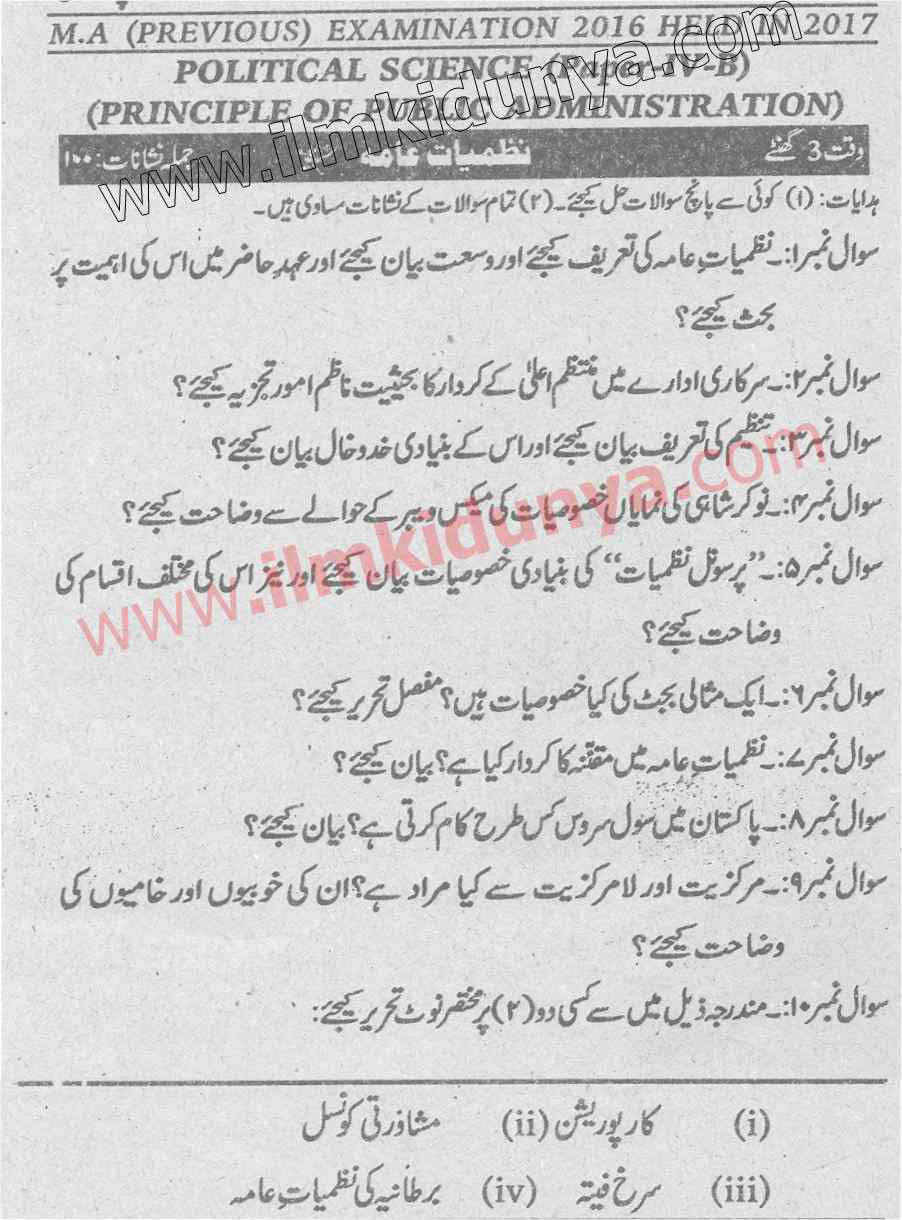 M.A (PREVIOUS) EXAMINATION 2016 HELD IN 2017
POLITICAL SCIENCE (Paper-IV-B)
(PRINCIPLE OF PUBLIC ADMINISTRATION)
وقت 3 گھنٹے نظمیات عامہ جملہ نشانات: ۱۰۰
ہدایات: (۱) کوئی سے پانچ سوالات حل کیجئے۔ (۲) تمام سوالات کے نشانات مساوی ہیں۔
سوال نمبر۱:۔ نظمیاتِ عامہ کی تعریف کیجئے اور وسعت بیان کیجئے اور عہدِ حاضر میں اس کی اہمیت پر
بحث کیجئے؟
سوال نمبر۲:۔ سرکاری ادارے میں منتظم اعلیٰ کے کردار کا بحیثیت ناظم امور تجزیہ کیجئے؟
سوال نمبر۳:۔ تنظیم کی تعریف بیان کیجئے اور اس کے بنیادی خدوخال بیان کیجئے؟
سوال نمبر۴:۔ نوکر شاہی کی نمایاں خصوصیات کی میکس ویبر کے حوالے سے وضاحت کیجئے؟
سوال نمبر۵:۔ ”پرسونل نظمیات“ کی بنیادی خصوصیات بیان کیجئے اور نیز اس کی مختلف اقسام کی
وضاحت کیجئے؟
سوال نمبر۶:۔ ایک مثالی بجٹ کی کیا خصوصیات ہیں؟ مفصل تحریر کیجئے؟
سوال نمبر۷:۔ نظمیاتِ عامہ میں مقنّنہ کا کردار کیا ہے؟ بیان کیجئے؟
سوال نمبر۸:۔ پاکستان میں سول سروس کس طرح کام کرتی ہے؟ بیان کیجئے؟
سوال نمبر۹:۔ مرکزیت اور لامرکزیت سے کیا مراد ہے؟ ان کی خوبیوں اور خامیوں کی
وضاحت کیجئے؟
سوال نمبر۱۰:۔ مندرجہ ذیل میں سے کسی دو (۲) پر مختصر نوٹ تحریر کیجئے:
(i) کارپوریشن (ii) مشاورتی کونسل
(iii) سرخ فیتہ (iv) برطانیہ کی نظمیاتِ عامہ
www.ilmkidunya.com
www.ilmkidunya.com